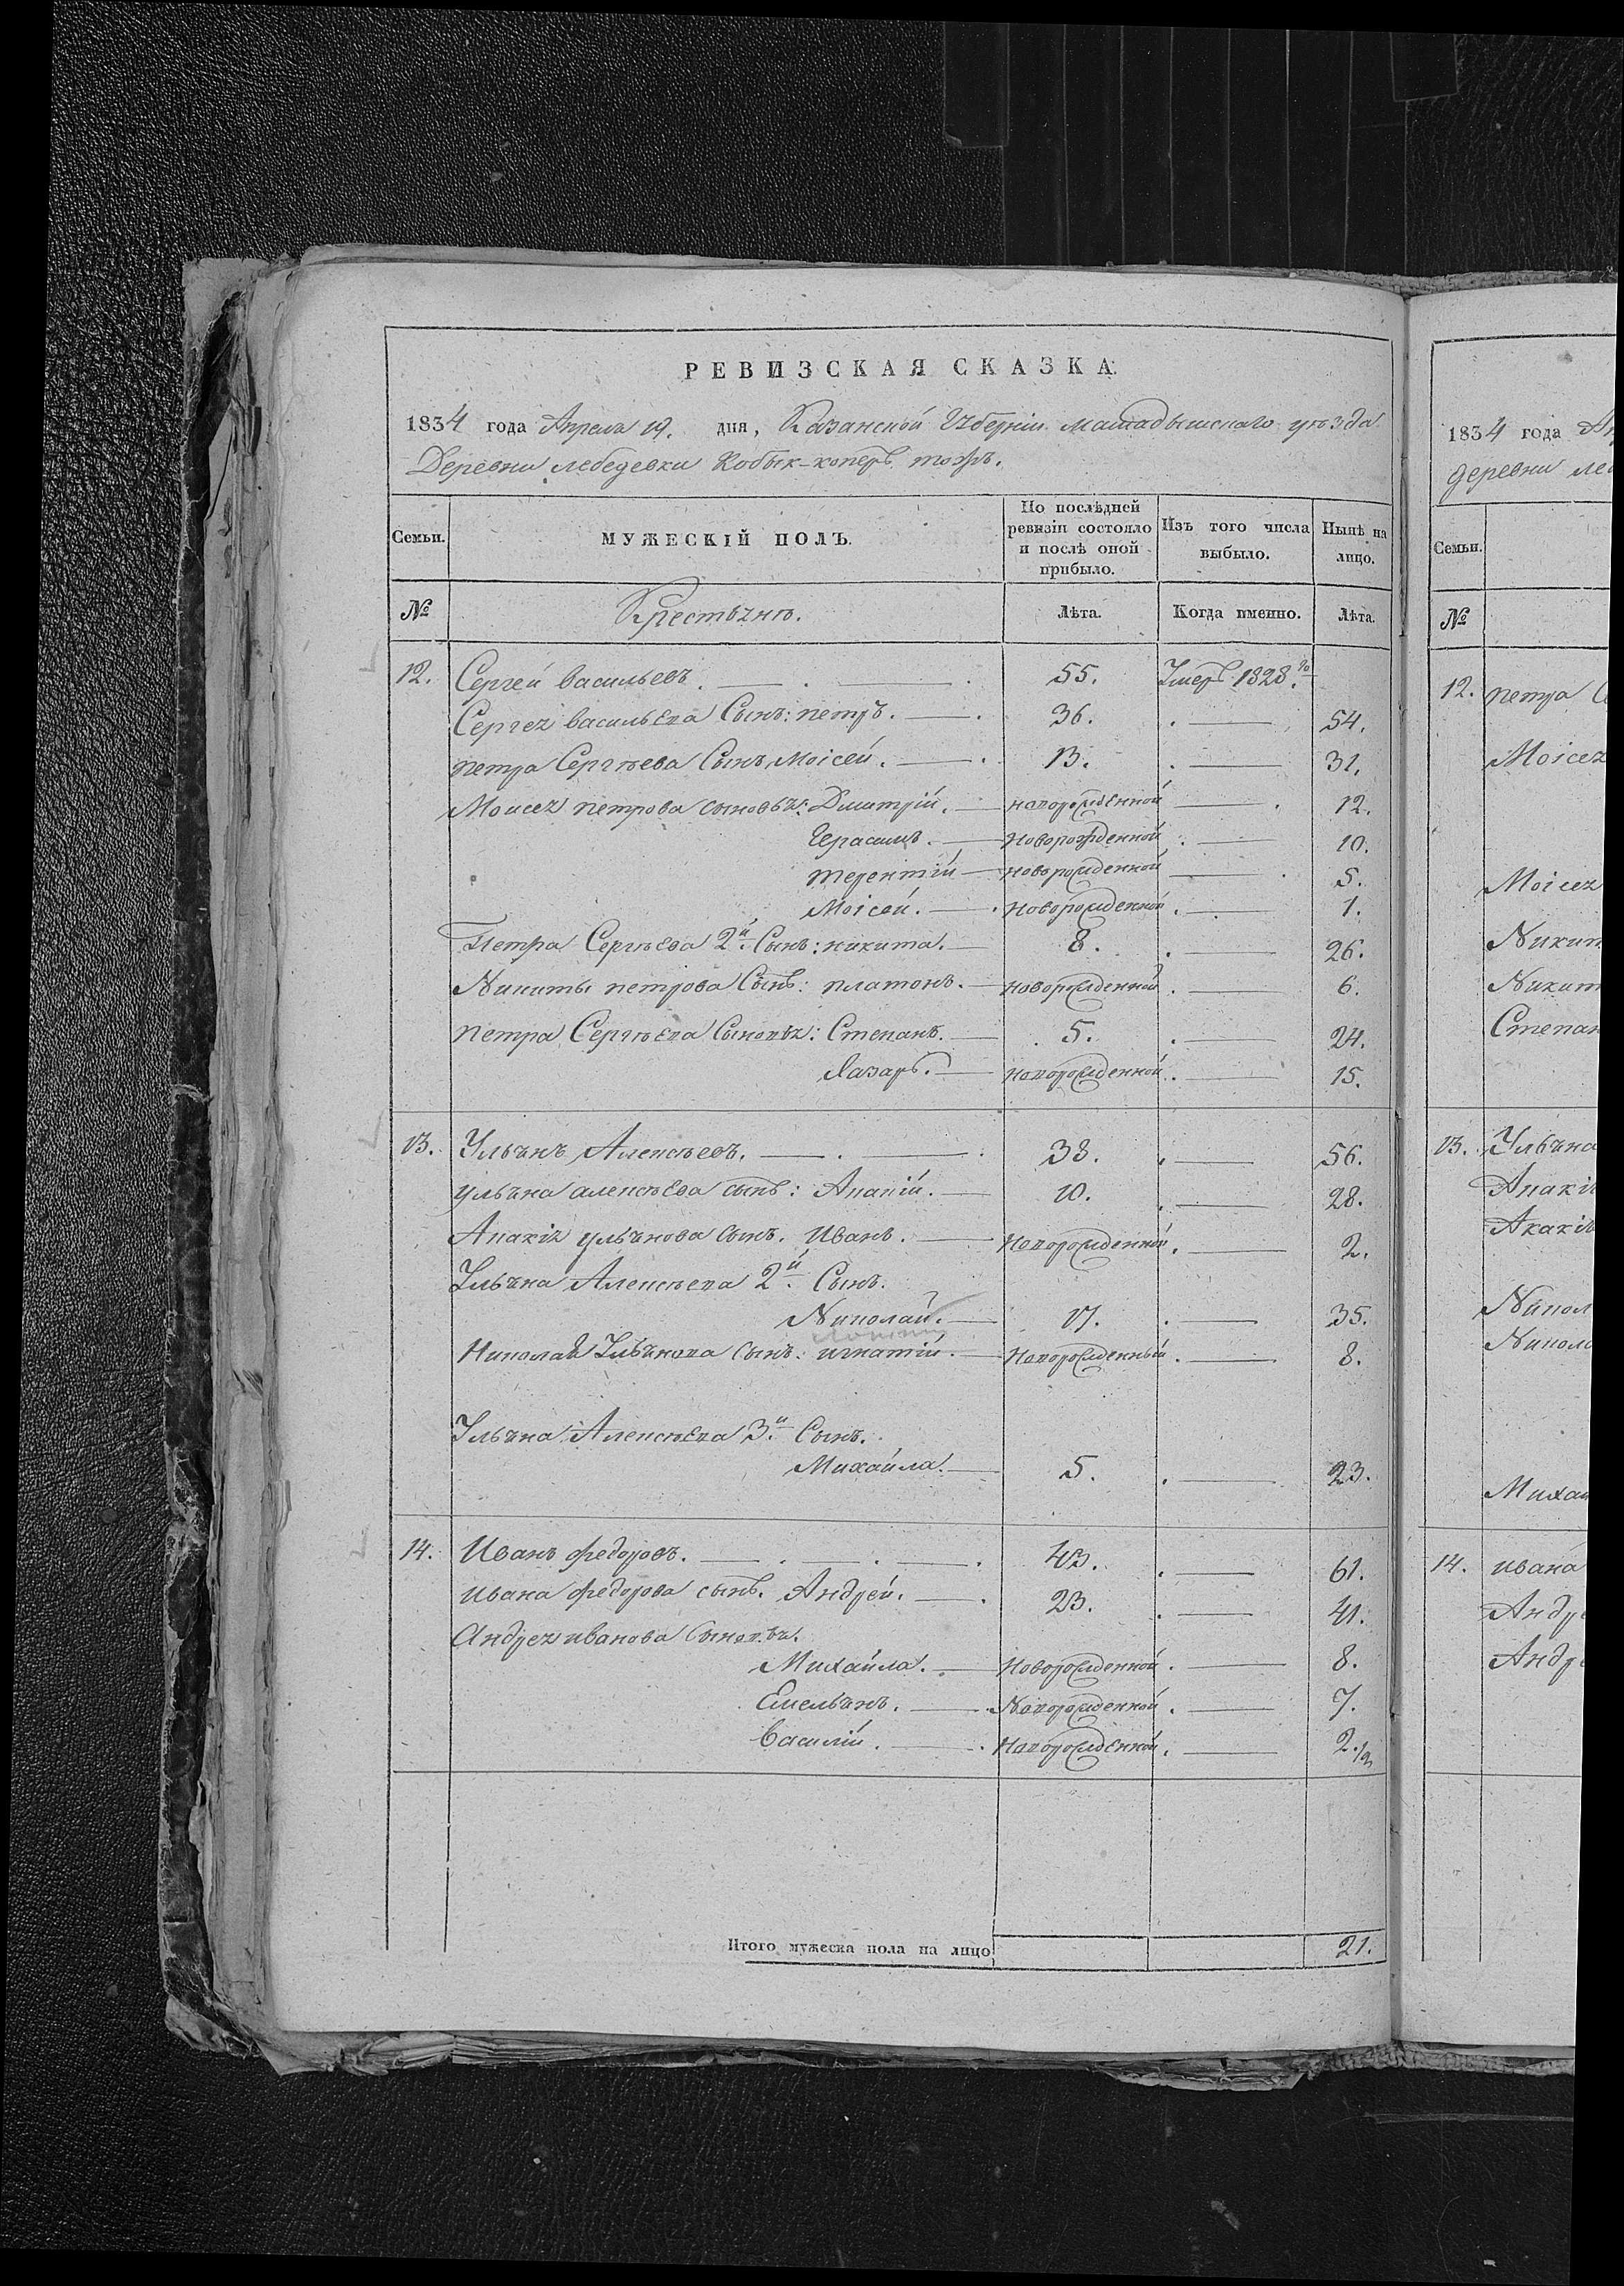 РЕВИЗСКАЯ СКАЗКА.
1834 года Апреля 19. дня, Казанской Губерніи мамадышскаго уезда
Деревни лебедевки Кобык-коперъ тожъ.
Семьи. МУЖЕСКІЙ ПОЛЪ. По послѣдней ревизіи состояло и послѣ оной прибыло. Изъ того числа выбыло. Нынѣ на лицо.
№ Крестьянѣ. Лѣта. Когда именно. Лѣта.
12. Сергей васильевъ. 55. Умеръ 1828.го
Сергея васильева Сынъ: петръ. 36. 54.
петра Сергѣева Сынъ Моісей. 13. 31.
Моисея петрова сыновья: Дмитрій. новорожденной 12.
Герасимъ. Новорожденной 10.
терентій новорожденной 5.
Моісей. Новорожденной 1.
Петра Сергѣева 2й. Сынъ: никита. 8. 26.
Никиты петрова Сынъ: платонъ. новорожденной 6.
петра Сергѣева Сыновья: Степанъ. 5. 24.
Лазарь. новорожденной 15.
13. Ульянъ Алексѣевъ. 38. 56.
ульяна алексѣева сынъ: Акакій. 10. 28.
Акакія ульянова сынъ. Иванъ. Новорожденный 2.
Ульяна Алексѣева 2й. Сынъ.
Николай. 17. 35.
Николая Ульянова сынъ: игнатій. Новорожденный 8.
Ульяна Алексѣева 3й. Сынъ.
Михайла. 5. 23.
14. Иванъ федоровъ. 43. 61.
ивана федорова сынъ. Андрей. 23. 41.
Андрея иванова Сыновья.
Михайла. Новорожденной 8.
Емельянъ. Новорожденной 7.
Василій. Новорожденной 2.
Итого мужеска пола на лицо 21.
1834 года Ап
деревни ле
Семьи.
№
12. петра С
Моісея
Моісея
Никит
Никит
Степан
13. Ульяна
Акакія
Акакія
Никол
Никол
Михай
14. ивана
Андре
Андре